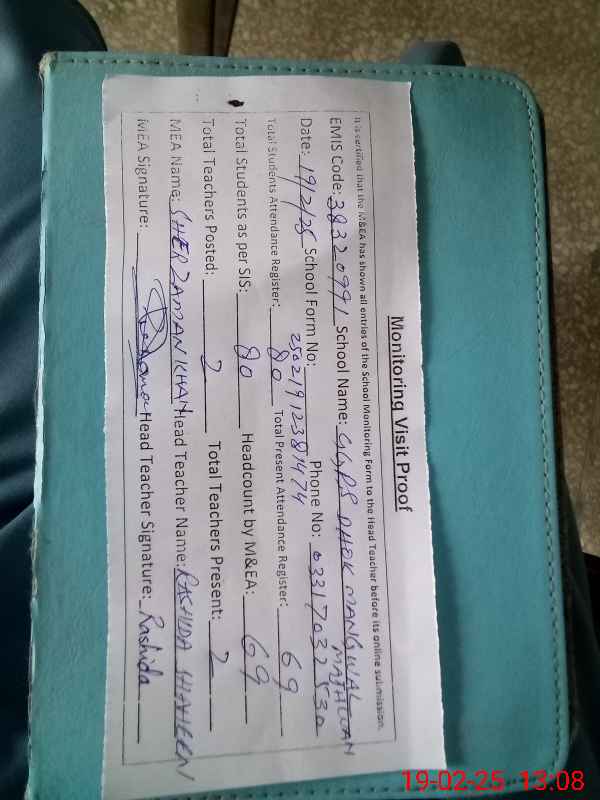 Monitoring Visit Proof
It is certified that the M&EA has shown all entries of the School Monitoring Form to the Head Teacher before its online submission.
EMIS Code: 38320991 School Name: GGPS DHOK MANGWAL
Date: 19/2/25 School Form No: 25021912381474 Phone No: 03317032530
Total Students Attendance Register: 80 Total Present Attendance Register: 69
Total Students as per SIS: 80 Headcount by M&EA: 69
Total Teachers Posted: 2 Total Teachers Present: 2
MEA Name: SHERZAMAN KHAN Head Teacher Name: RASHIDA SHAHEEN
MEA Signature: Head Teacher Signature: Rashida
19-02-25 13:08